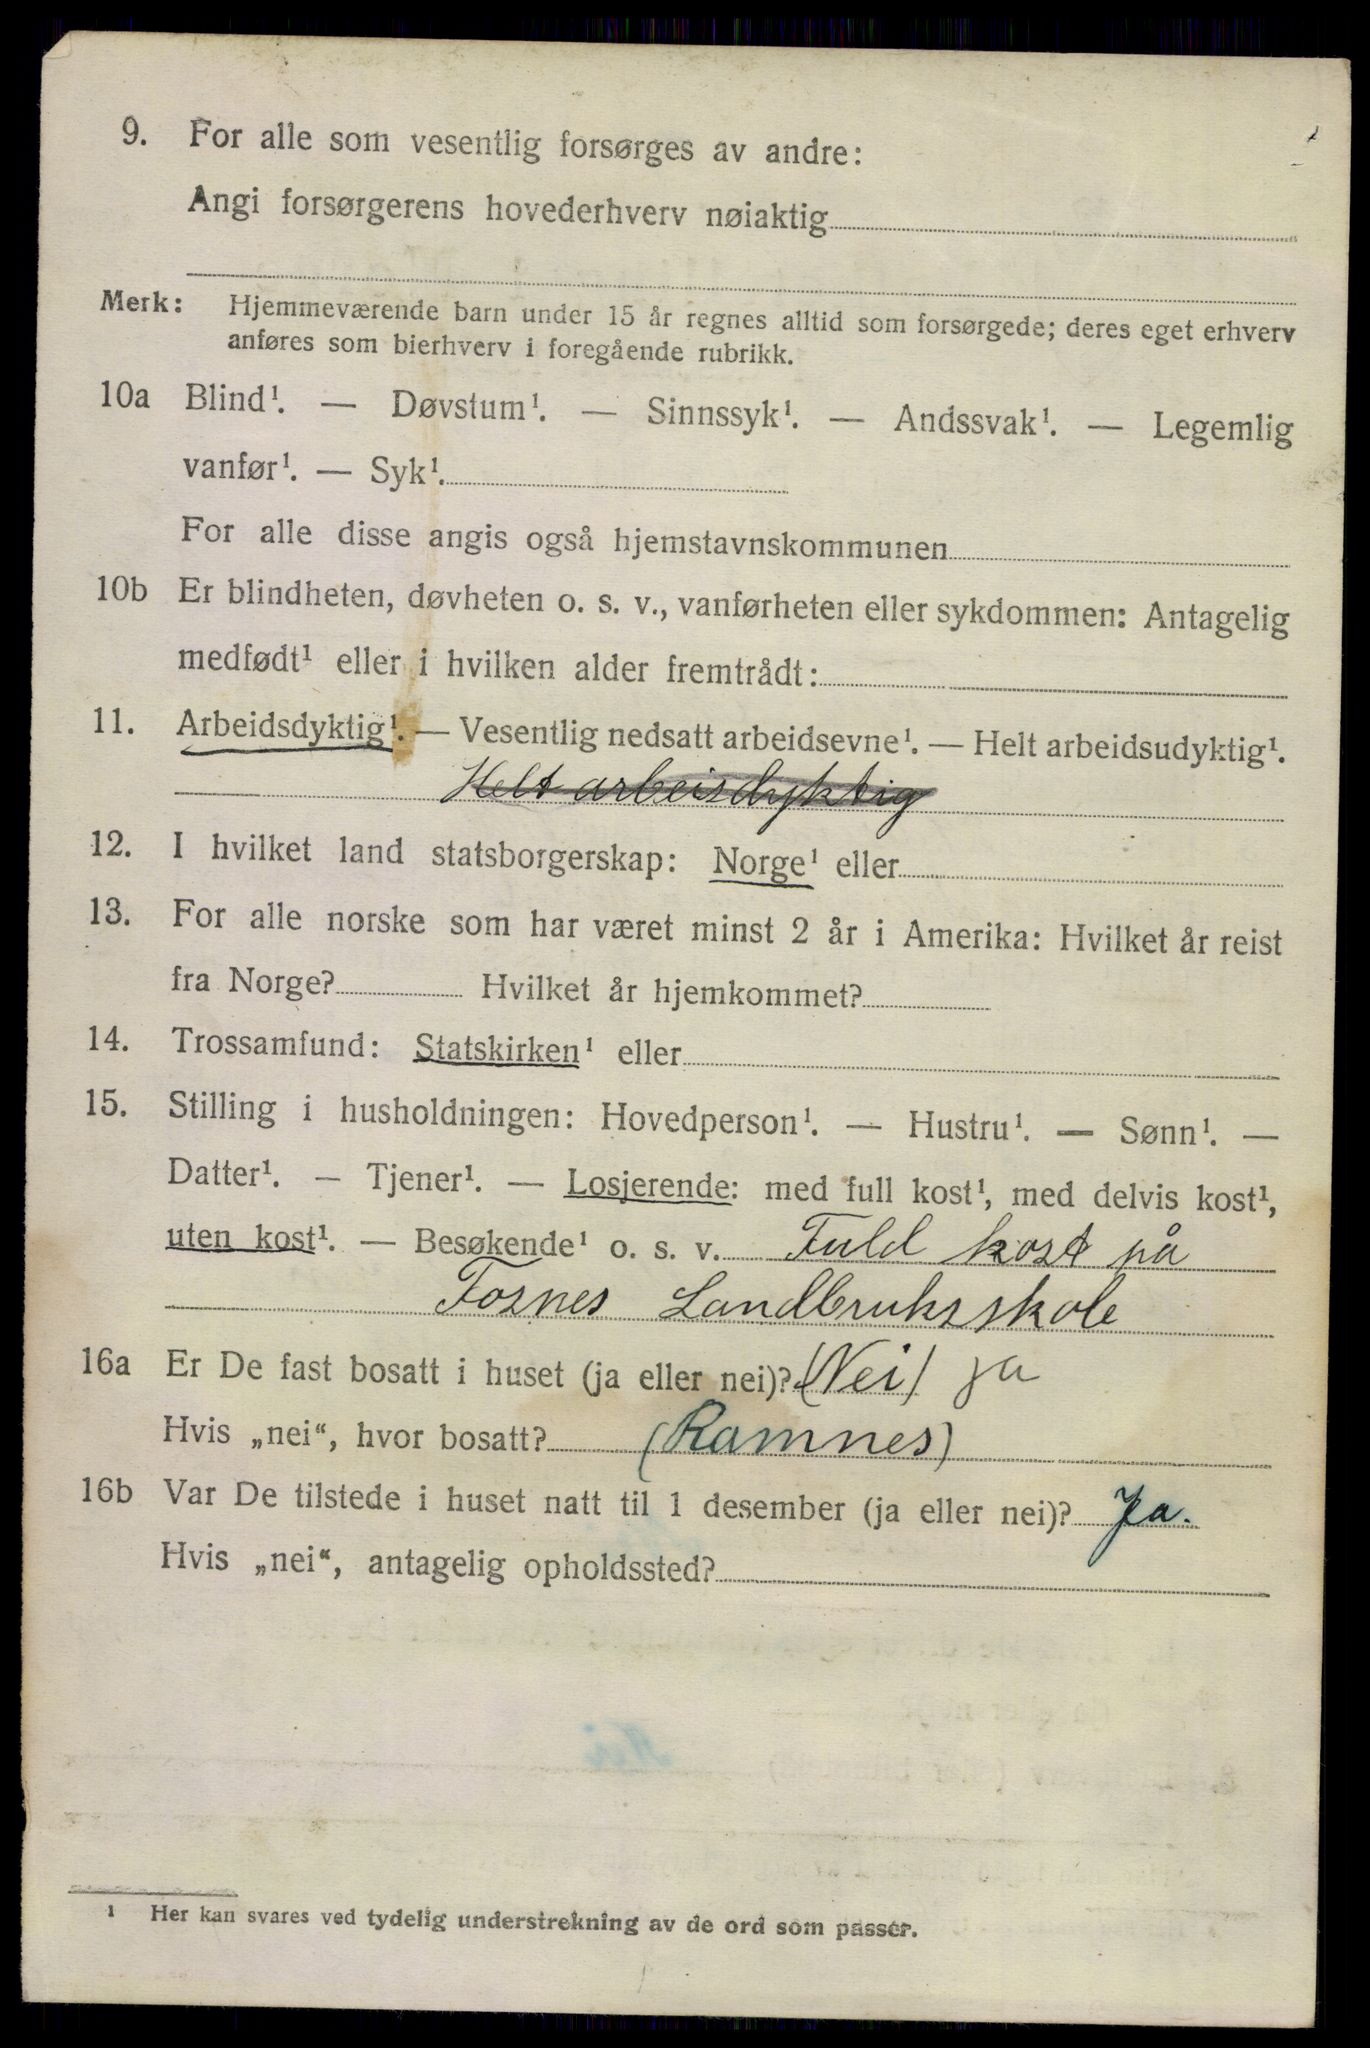 9. For alle som vesentlig forsørges av andre:
Angi forsørgerens hovederhverv nøiaktig
Merk: Hjemmeværende barn under 15 år regnes alltid som forsørgede; deres eget erhverv
anføres som bierhverv i foregående rubrikk.
10a Blind¹. — Døvstum¹. — Sinnssyk¹. — Andssvak¹. — Legemlig
vanfør¹. — Syk¹.
For alle disse angis også hjemstavnskommunen
10b Er blindheten, døvheten o. s. v., vanførheten eller sykdommen: Antagelig
medfødt¹ eller i hvilken alder fremtrådt:
11. Arbeidsdyktig¹. — Vesentlig nedsatt arbeidsevne¹. — Helt arbeidsudyktig¹.
Helt arbeisdyktig
12. I hvilket land statsborgerskap: Norge¹ eller
13. For alle norske som har været minst 2 år i Amerika: Hvilket år reist
fra Norge? Hvilket år hjemkommet?
14. Trossamfund: Statskirken¹ eller
15. Stilling i husholdningen: Hovedperson¹. — Hustru¹. — Sønn¹. —
Datter¹. — Tjener¹. — Losjerende: med full kost¹, med delvis kost¹,
uten kost¹. — Besøkende¹ o. s. v. Fuld kost på
Fosnes Landbruksskole
16a Er De fast bosatt i huset (ja eller nei)? (Nei) ja
Hvis „nei“, hvor bosatt? (Ramnes)
16b Var De tilstede i huset natt til 1 desember (ja eller nei)? Ja.
Hvis „nei“, antagelig opholdssted?
¹ Her kan svares ved tydelig understrekning av de ord som passer.